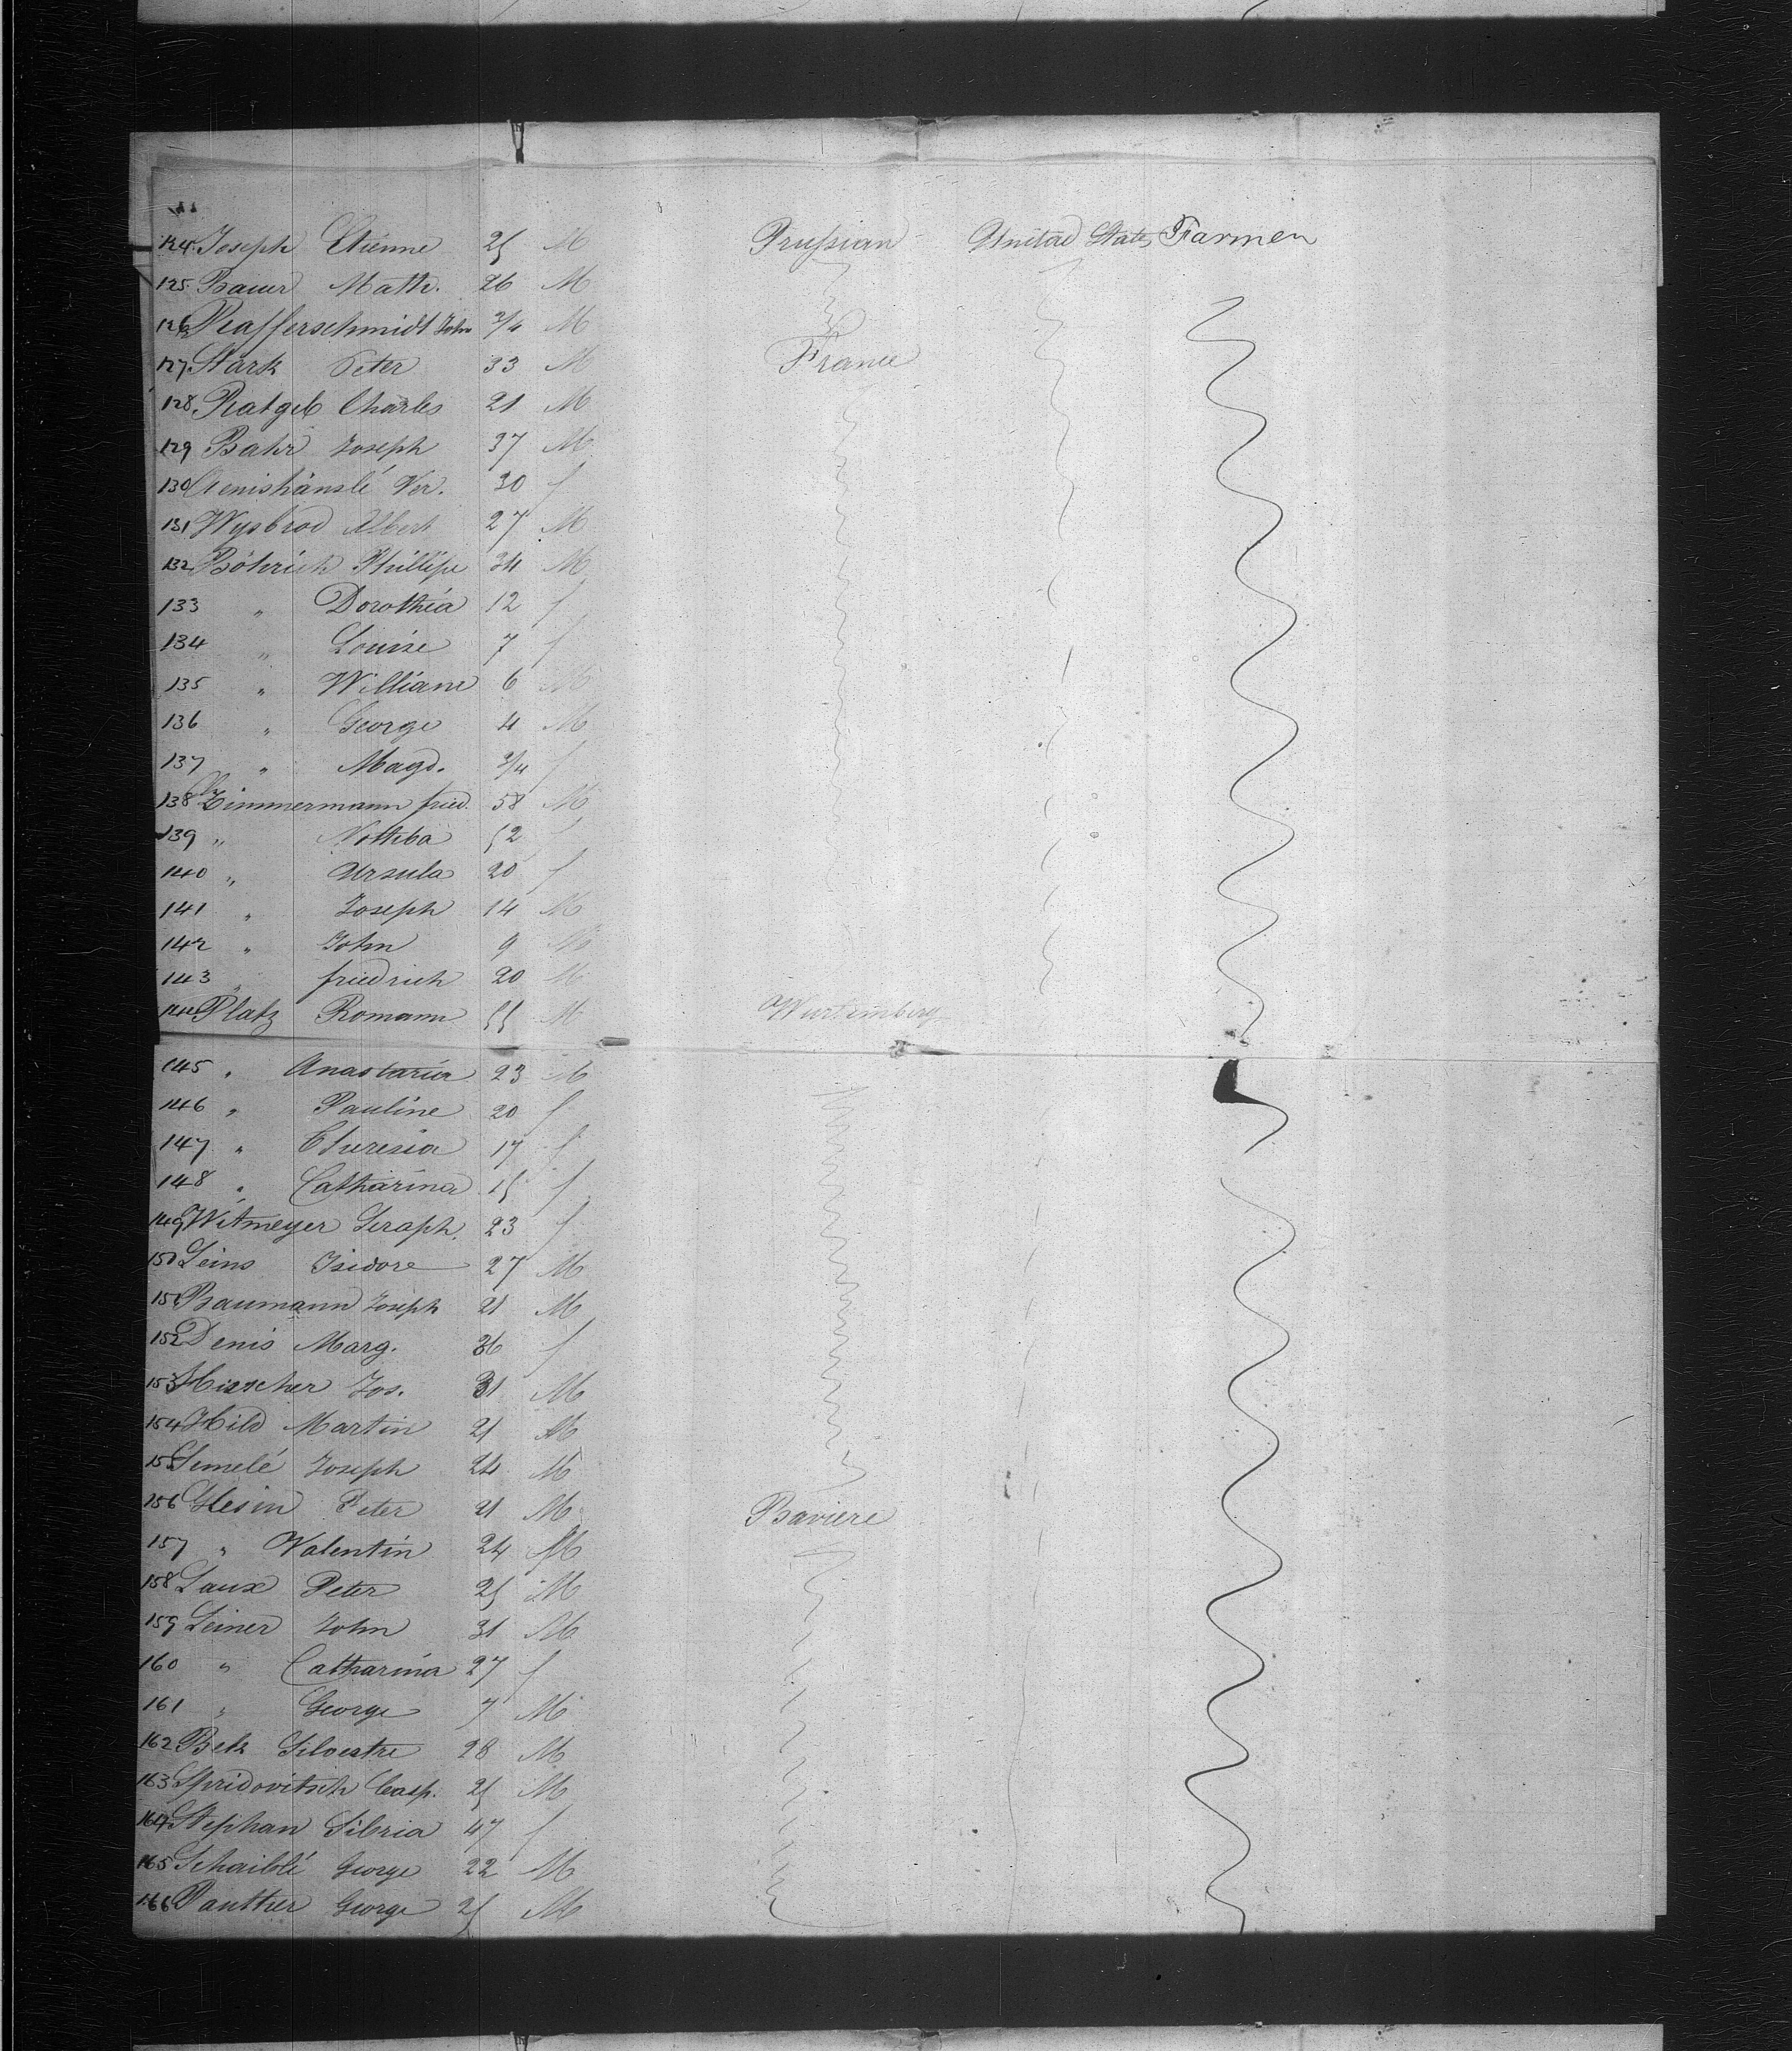 124 Joseph Etienne 25 M Prussian United States Farmer
125 Bauer Math. 26 M
126 Pfafferschmidt John 3/4 M
127 Stark Peter 33 M France
128 Ratgeb Charles 21 M
129 Bahr Joseph 37 M
130 Ver. 30 f
131 Wysbrod Albert 27 M
132 Böhrich Phillipe 34 M
133 " Dorothéa 12 f
134 " Louise 7 f
135 " Williame 6 M
136 " George 4 M
137 " Magd. 3/4 f
138 Zimmermann fried. 58 M
139 " Nothba 52 f
140 " Ursula 20 f
141 " Joseph 14 M
142 " John 9 M
143 " friedrich 20 M
144 Platz Romann 55 M Wurtemberg
145 " Anastasia 23 M
146 " Pauline 20 f
147 " Theresia 17 f
148 " Catharina 15 f
149 Witmeyer Seraph. 23 f
150 Leins Isidore 27 M
151 Baumann Joseph 21 M
152 Denis Marg. 26 f
153 Hisscher Jos. 31 M
154 Hild Martin 21 M
155 Semelé Joseph 24 M
156 Glesin Peter 21 M Baviere
157 " Valentin 24 M
158 Laux Peter 25 M
159 Leiner John 31 M
160 " Catharina 27 f
161 " George 7 M
162 Betz Silvestre 28 M
163 Spridovitsch Casp. 25 M
164 Stephan Sibria 47 f
165 Schaiblé George 22 M
166 Panther George 25 M